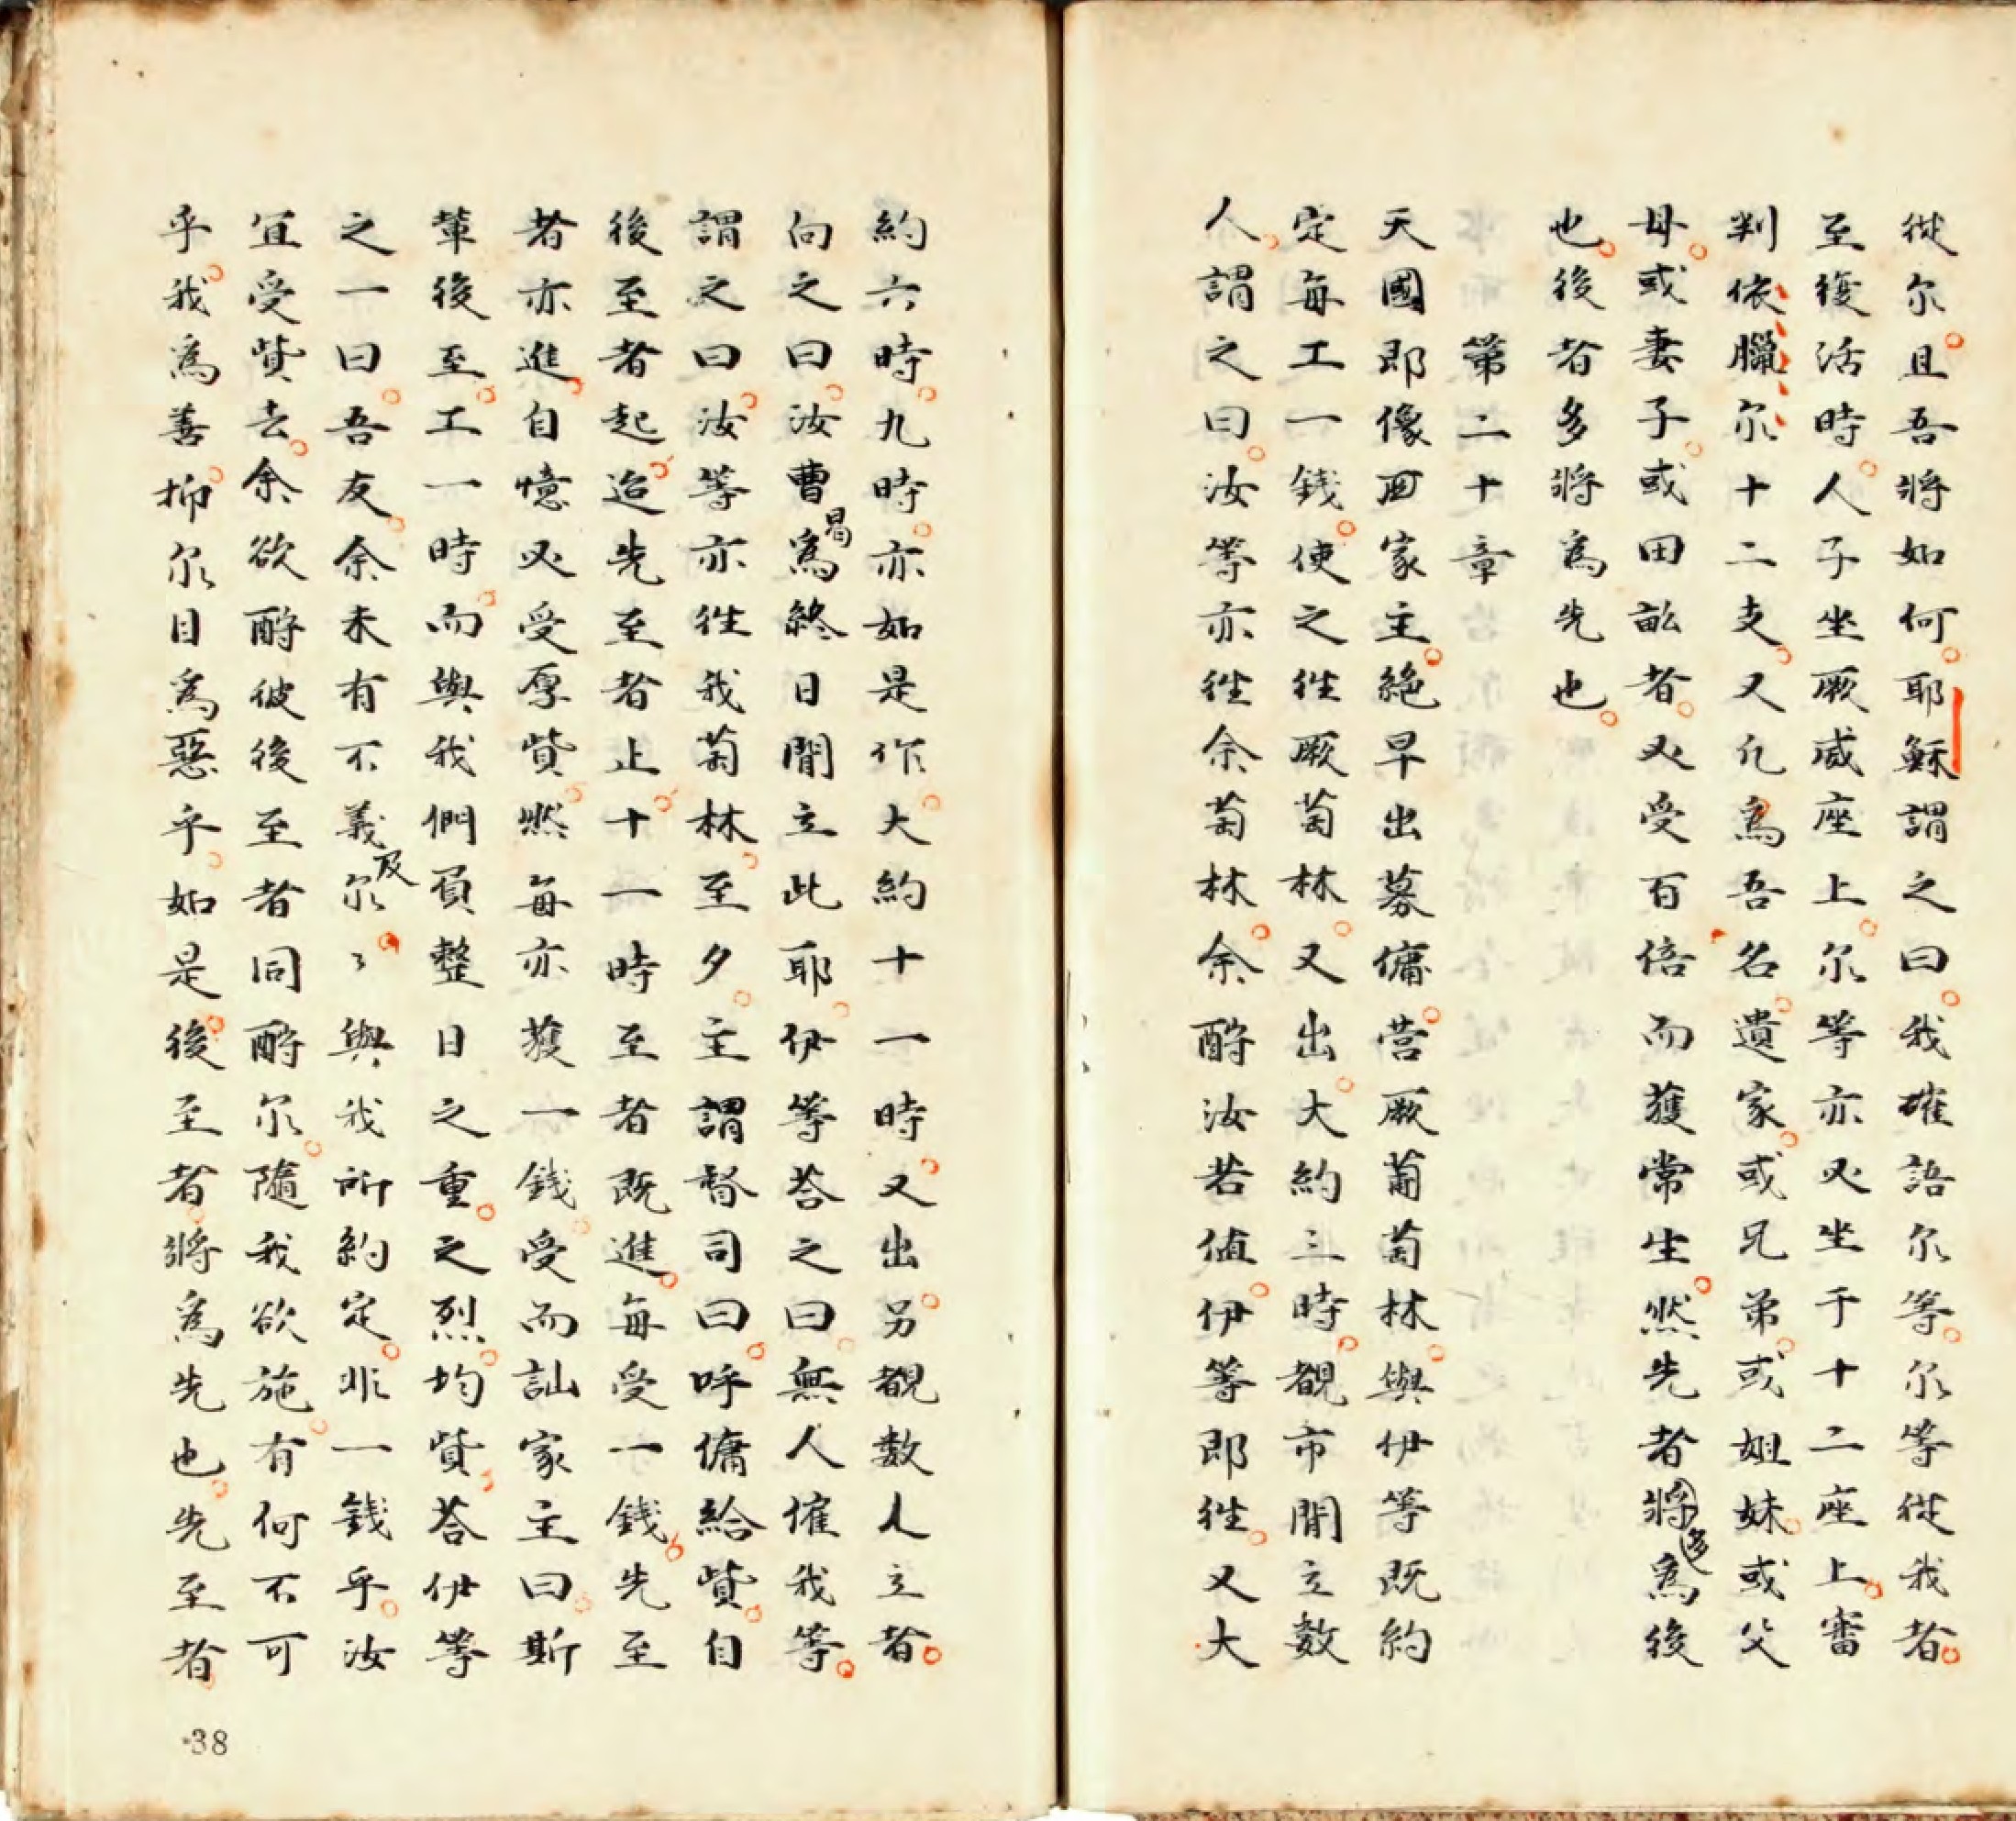 從尔。且吾將如何。耶穌謂之曰。我確語尔等。尔等從我者。
至復活時。人子坐厥威座上。尔等亦必坐于十二座上。審
判依臘尔十二支。又凡爲吾名。遺家。或兄弟。或姐妹。或父
母。或妻子。或田畝者。必受百倍而獲常生。然先者將多爲後
也。後者多將爲先也。
第二十章
天國即像酉家主。絶早出募傭。营厥葡萄林。與伊等既約
定每工一錢。使之徃厥萄林。又出。大約三時。覩市閒立数
人。謂之曰。汝等亦徃余萄林。余酧汝若値。伊等即徃。又大
約六時。九時。亦如是作。大約十一時。又出。另覩数人立者。
向之曰。汝曹曷爲終日閒立此耶。伊等荅之曰。無人僱我等。
謂之曰。汝等亦徃我萄林。至夕。主謂督司曰。呼傭給貲。自
後至者起。迨先至者止。十一時至者既進。每受一錢。先至
者亦進。自憶必受厚貲。然每亦獲一錢。受而訕家主曰。斯
輩後至。工一時。而與我們負整日之重。之烈。均貲。荅伊等
之一曰。吾友。余未有不義及尔。〻與我所約定。非一錢乎。汝
宜受貲去。余欲酧彼後至者同酧尔。隨我欲施。有何不可
乎。我爲善。抑尔目爲惡乎。如是後至者將爲先也。先至者
38